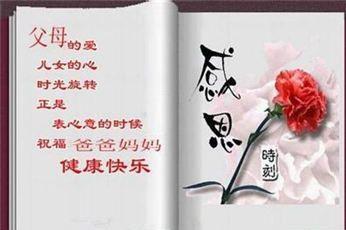 父母的爱
儿女的心
时光旋转
正是
表心意的时候
祝福 爸爸妈妈
健康快乐
感恩
時刻